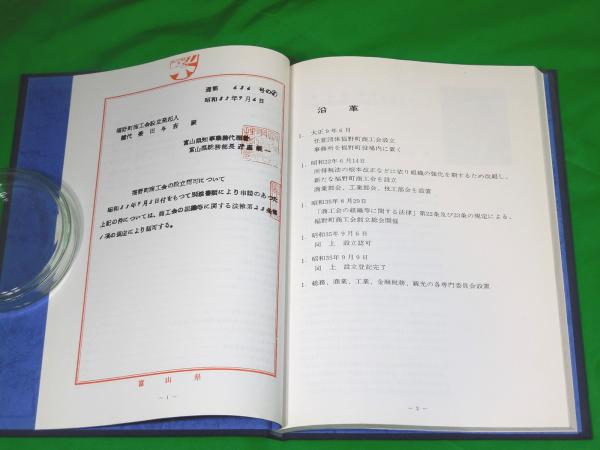 通第 636 号の
昭和35年9月6日
福野町商工会設立発起人
総代 田 殿
富山県知事職務代理者
富山県総務部長
福野町商工会の設立認可について
昭和35年9月3日付をもつて関係書類により申請のあつた
上記の件については、商工会の組織等に関する法律第23条第
1項の規定により認可する。
富山県
― 1 ―
沿革
1. 大正9年6月
任意団体福野町商工会設立
事務所を福野町役場内に置く
1. 昭和22年6月14日
所得税法の根本改正などに依り組織の強化を期するため改組し、
新たな福野町商工会を設立
商業部会、工業部会、技工部会を設置
1. 昭和35年8月29日
「商工会の組織等に関する法律」第22条及び23条の規定による、
福野町商工会創立総会開催
1. 昭和35年9月6日
同 上 設立認可
1. 昭和35年9月9日
同 上 設立登記完了
1. 総務、商業、工業、金融税務、観光の各専門委員会設置
― 2 ―